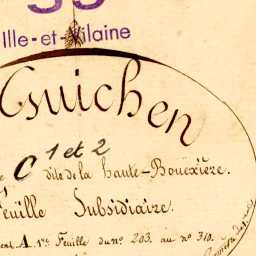 35
Ille-et-Vilaine
Guichen
C 1 et 2 dite de la haute-Bouëxière.
Feuille Subsidiaire.
A. 1re Feuille du no 203. au no 310.